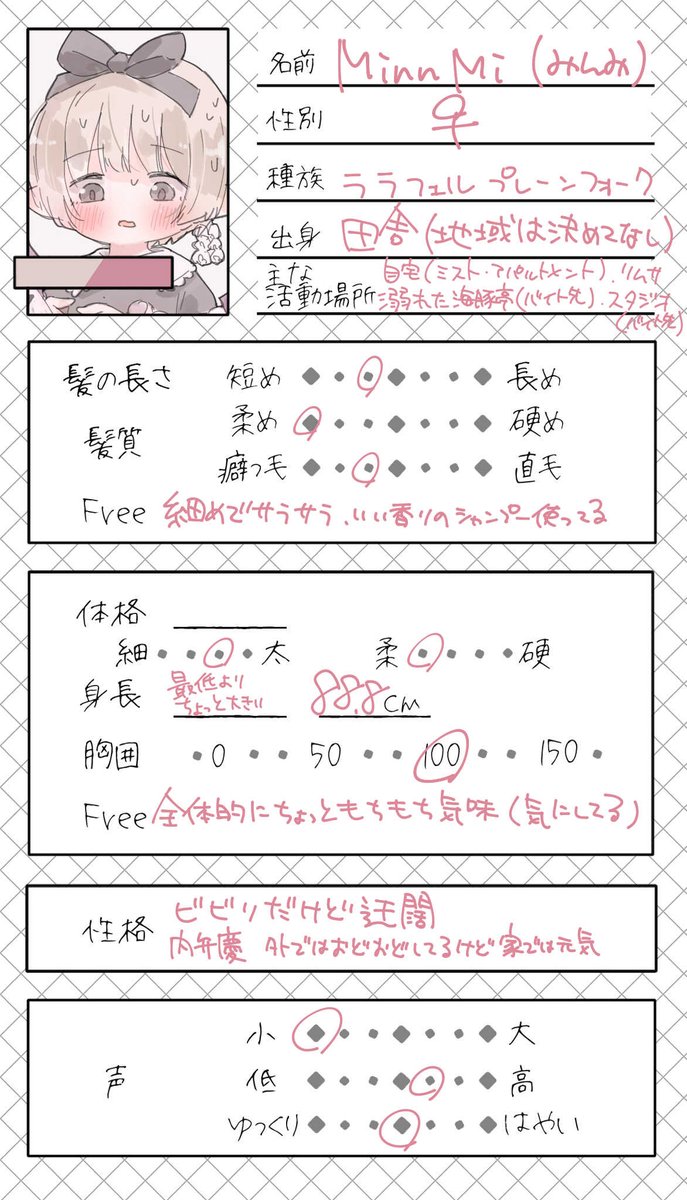 名前 Minn Mi (みんみ)
性別 ♀
種族 ララフェル プレーンフォーク
出身 田舎(地域は決めてなし)
主な
活動場所
自宅(ミスト・アパルトメント)、リムサ
溺れた海豚亭(バイト先)、スタジオ
(バイト先)
髪の長さ 短め 長め
髪質
柔め 硬め
癖っ毛 直毛
Free 細めでサラサラ、いい香りのシャンプー使ってる
体格
細 太 柔 硬
身長 最低より
ちょっと大きい 88.8cm
胸囲 0 50 100 150
Free 全体的にちょっともちもち気味(気にしてる)
性格 ビビリだけど迂闊
内弁慶 外ではおどおどしてるけど家では元気
声
小 大
低 高
ゆっくり はやい